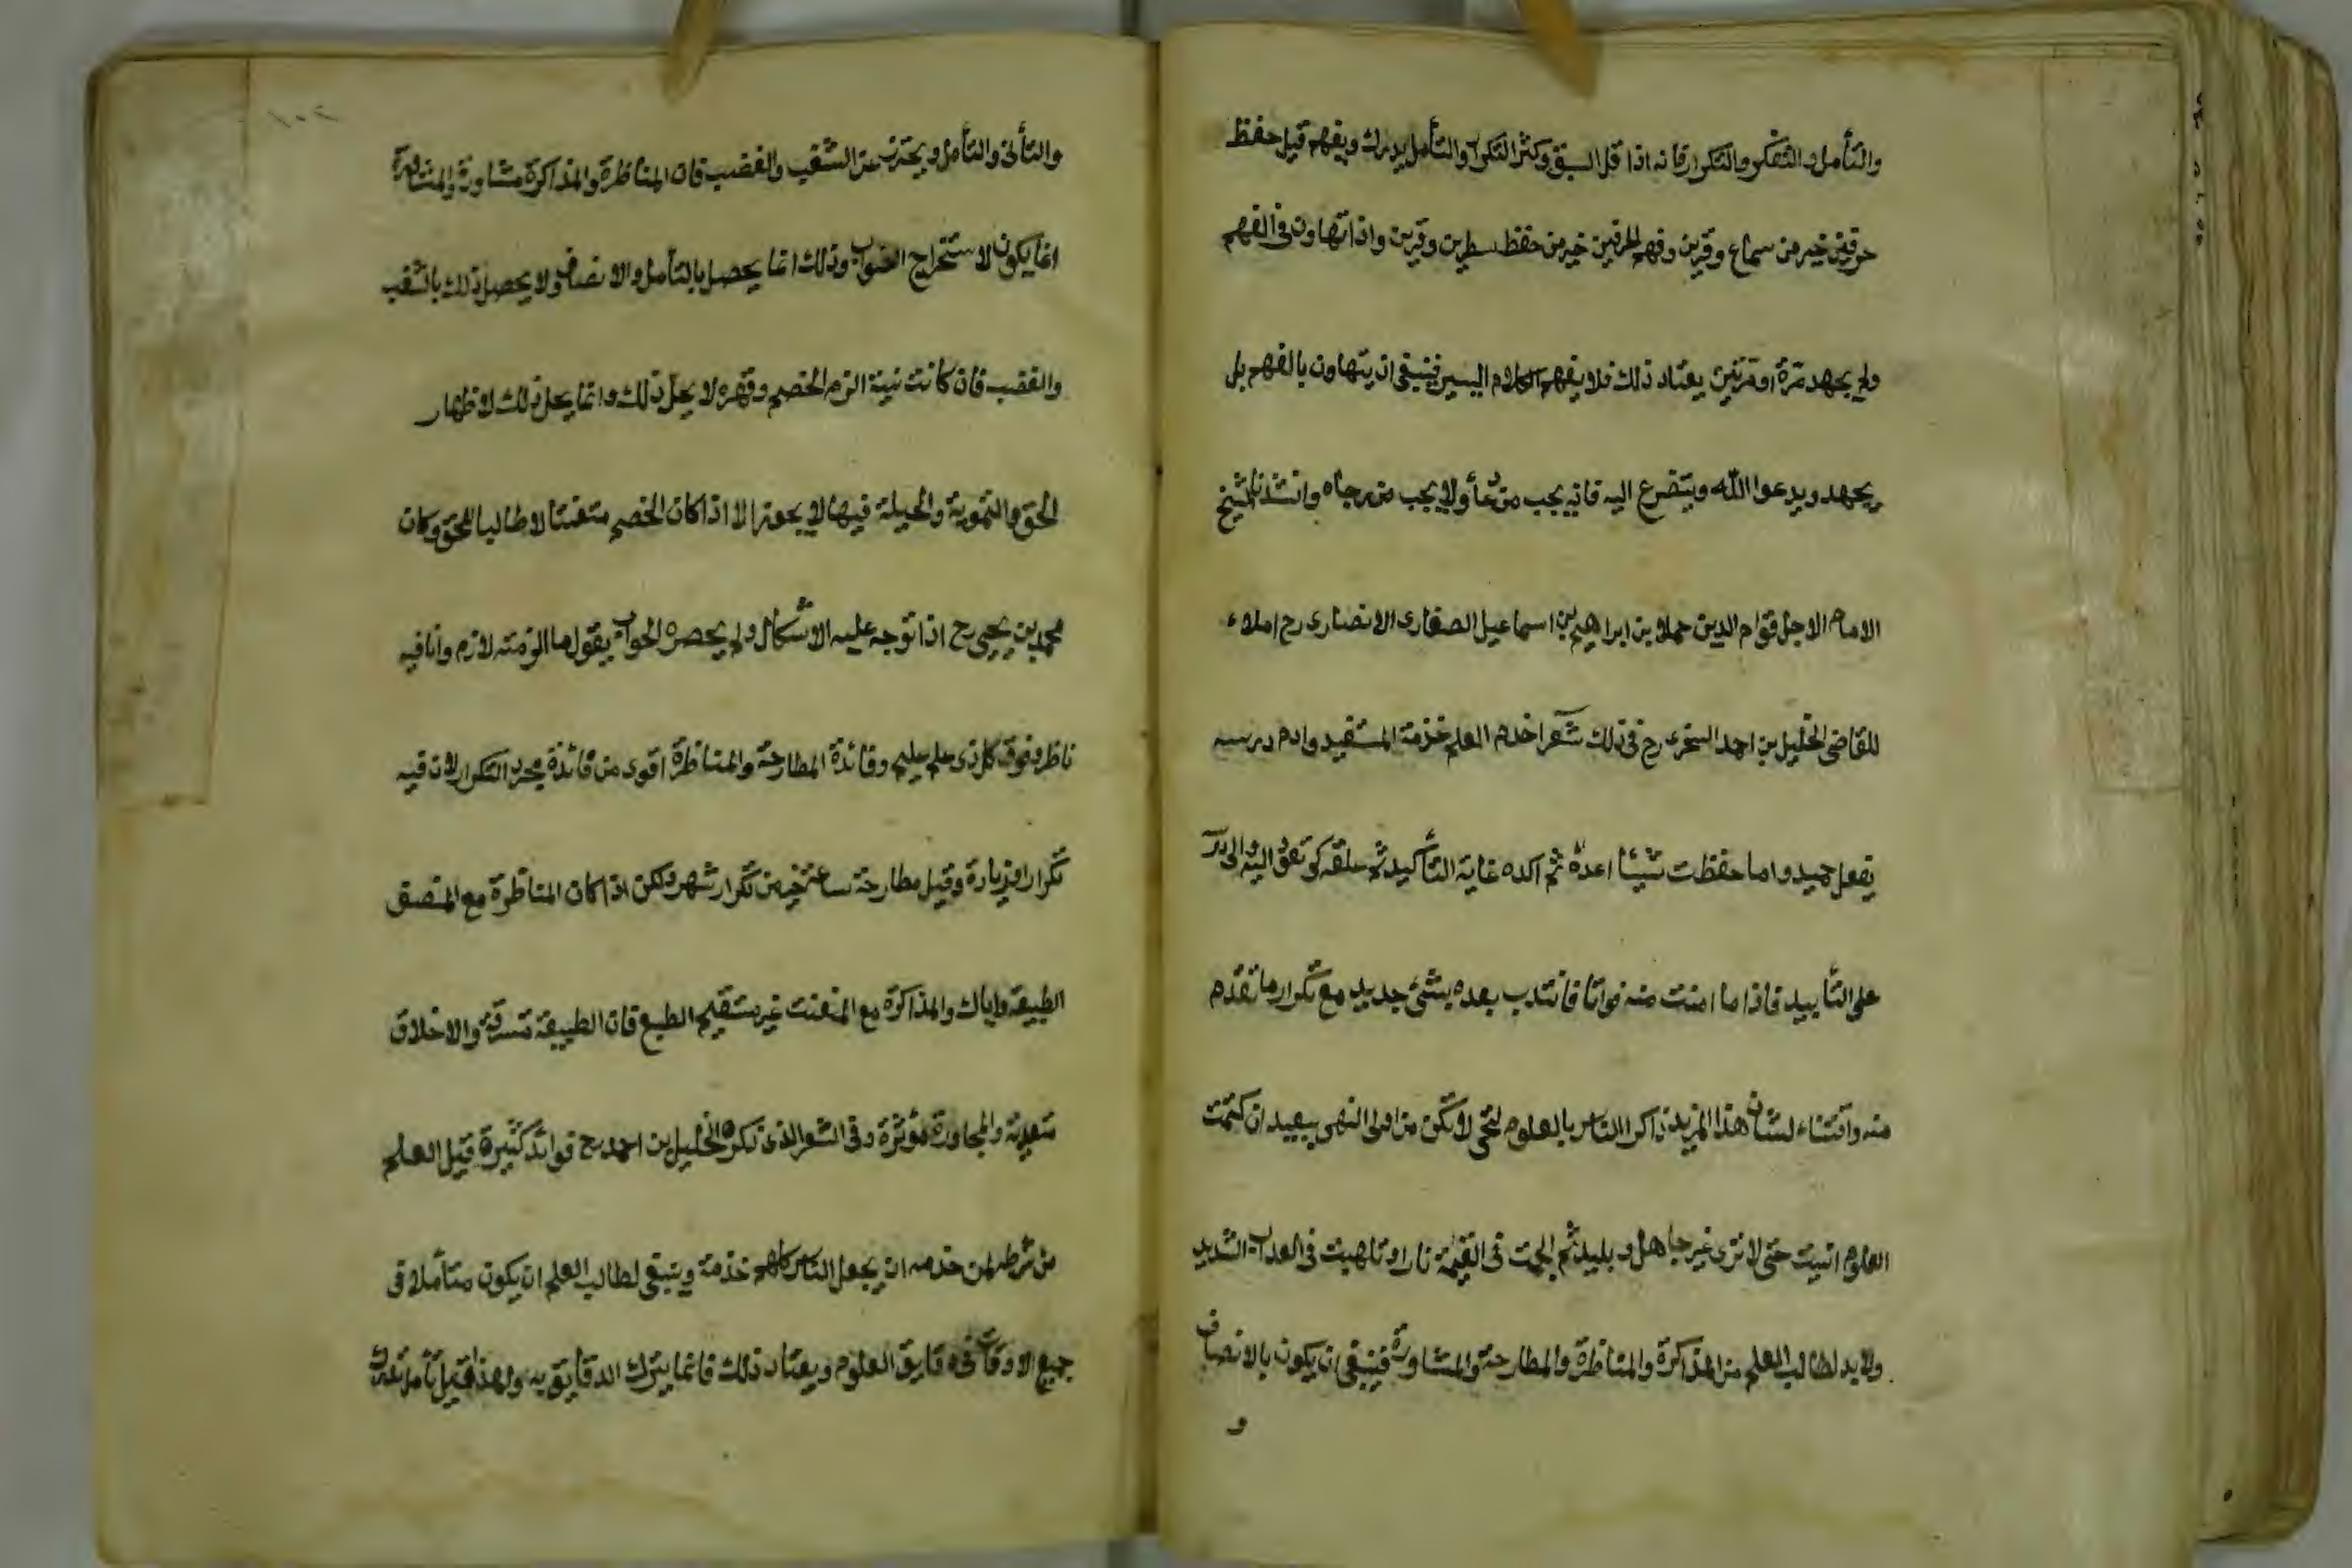 والتأمل والتفكر والتكرار فانه اذا قل السبق وكثر التكرار والتأمل يدرك ويفهم قيل حفظ
حرفين خير من سماع وقرين وفهم الحرفين خير من حفظ سطرين وقرين واذا تهاون فى الفهم
ولم يجهد مرة او مرتين يعتاد ذلك فلا يفهم الكلام اليسير فينبغى ان يتهاون بالفهم بل
يجهد ويدعوا الله ويتضرع اليه فانه يجب من دعأ ولا يجب من رجاه وانشدنا الشيخ
الامام الاجل قوام الدين حملا بن ابراهيم بن اسماعيل الصفارى الانصارى رح املاء
للقاضى الخليل بن احمد السخرى رح فى ذلك شعر اخدم العلم خزمة المستفيد وادم درسه
بفعل حميد واما حفظت شيئا اعده ثم اكده غاية التأكيد ثم علقه كو تعود اليه والى در
على التأبيد فاذا ما امنت منه فواتا فانتدب بعده بشئ جديد مع تكرار ما تقدم
منه واقتناء لشان هذا المزيد ذاكر الناس بالعلوم لتحى لا تكن من اولى النهى ببعيد ان كتمت
العلوم انسيت حتى لا ترى غير جاهل وبليد ثم الجمت فى القيمة نارا وتلهبت فى العذاب الشديد
ولابد لطالب العلم من المذاكرة والمناظرة والمطارحة والمشاورة فينبغى ان يكون بالانصاف
و
١٠٢
والتأنى والتأمل ويحترز عن الشغب والغضب فان المناظرة والمذاكرة مشاورة والمشاورة
انما يكون لاستخراج الصواب وذلك انما يحصل بالتأمل والانصاف ولا يحصل ذلك بالشغب
والغضب فان كانت نيته الزم الخصم وقهره لا يحل ذلك وانما يحل ذلك لاظهار
الحق والتموية والحيلة فيها لا يجوز الا اذا كان الخصم متعنتا لا طالبا للحق وكان
محمد بن يحيى رح اذا توجه عليه الاشكال ولم يحصره الجواب يقول ما الزمته لازم وانا فيه
ناظر وفوق كل ذى علم عليم وفائدة المطارحة والمناظرة اقوى من فائدة مجرد التكرار لان فيه
تكرارا وزيادة وقيل مطارحة ساعة خير من تكرار شهر ولكن اذا كان المناظرة مع المنصف
الطبيعة واياك والمذاكرة مع المتعنت غير مستقيم الطبع فان الطبيعة مسرقة والاخلاق
متعدية والمجاورة مؤثرة وفى الشعر الذى ذكره الخليل بن احمد رح فوائد كثيرة قيل العلم
من شرطه لمن خدمه ان يجعل الناس كلهم خدمة وينبغى لطالب العلم ان يكون متأملا فى
جميع الاوقات فى دقايق العلوم ويعتاد ذلك فانما يترك الدقايق به ولهذا قيل تأمل تدرك